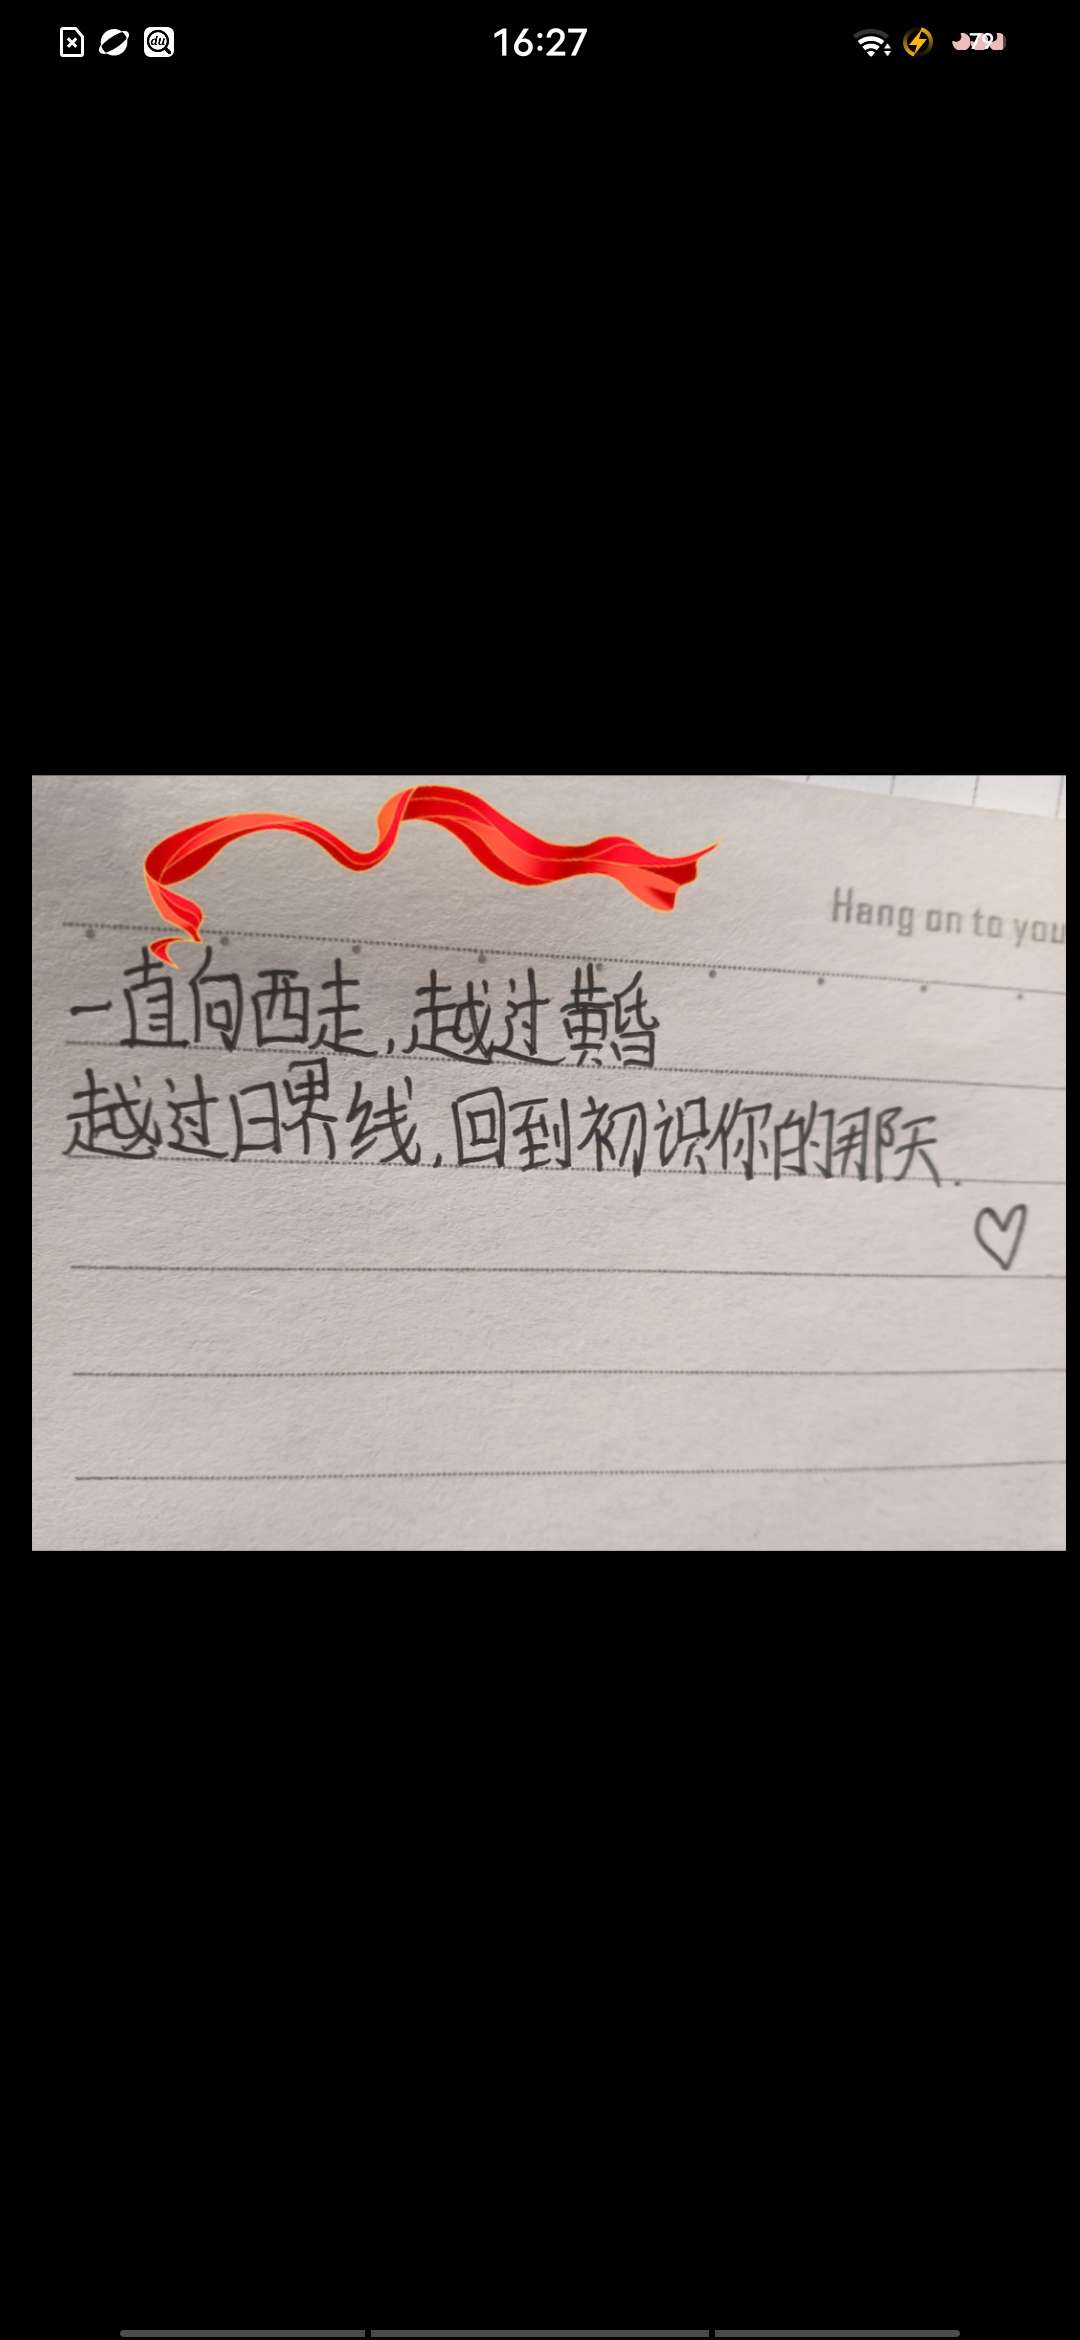 16:27
79
Hang on to you
一直向西走,越过黄昏
越过日界线,回到初识你的那天.